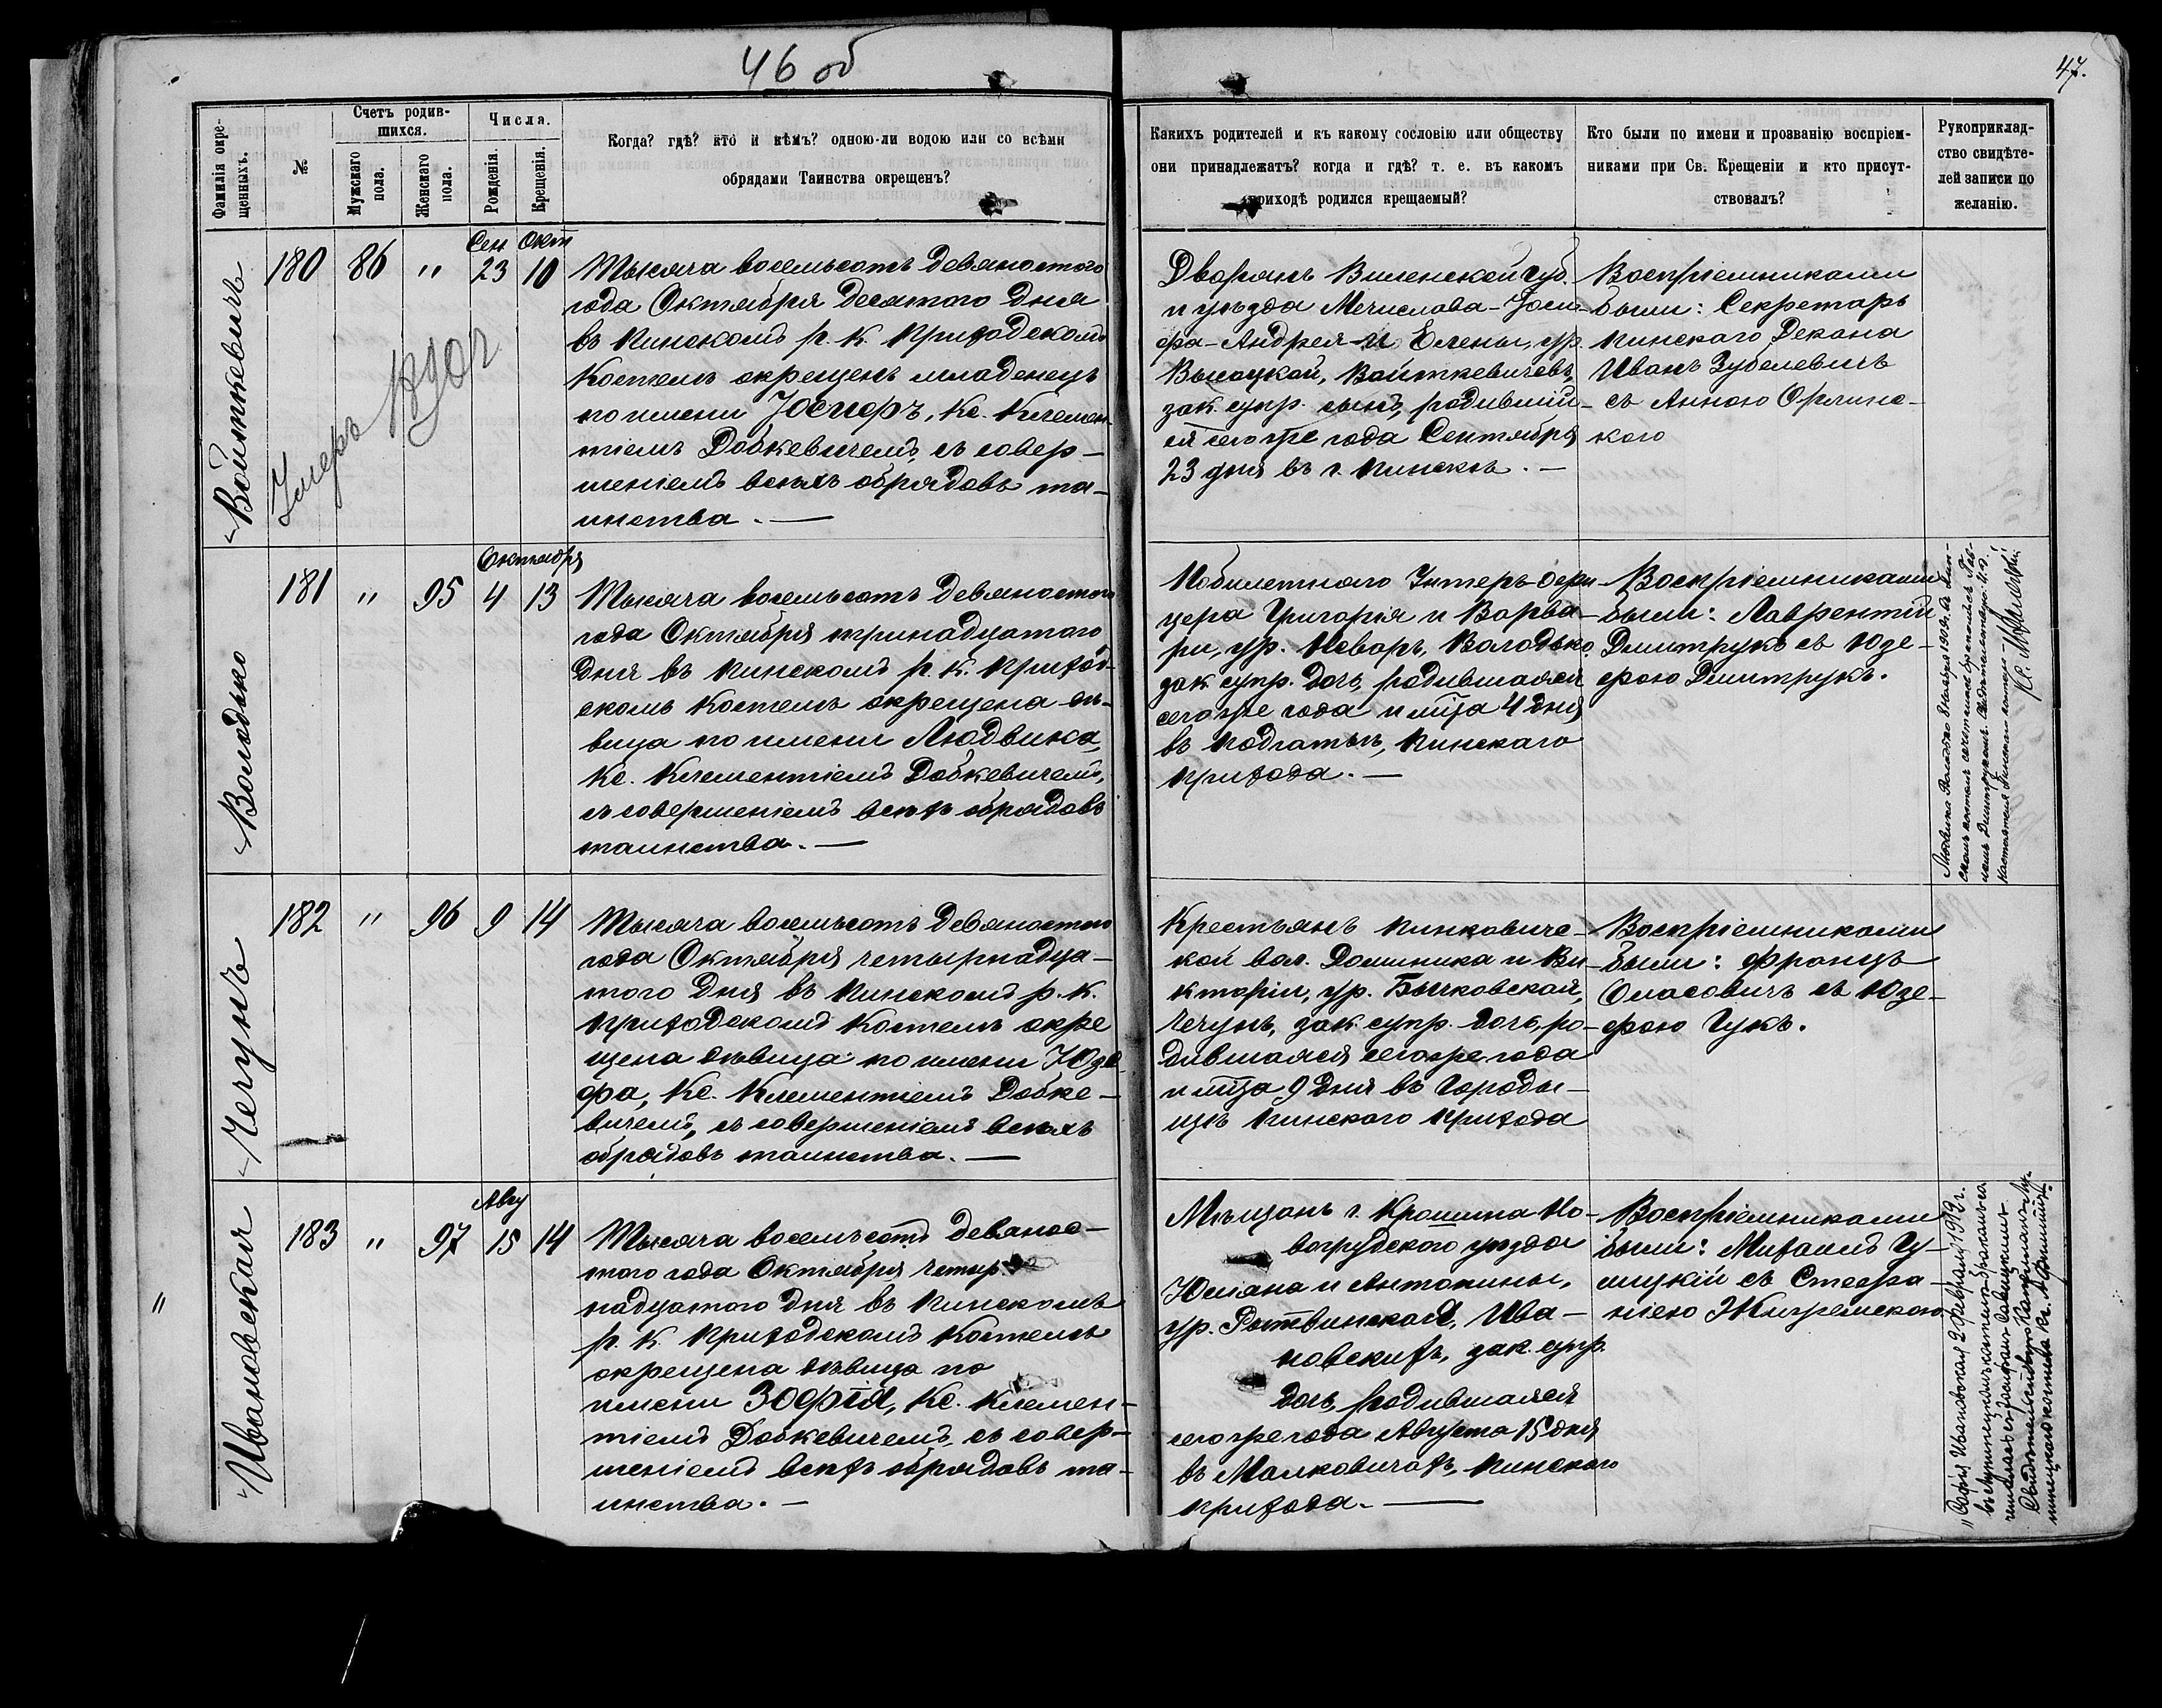 46 об
47.
Фамилія окре-
щенныхъ.
№
Счетъ родив-
шихся.
Мужскаго
пола.
Женскаго
пола.
Числа.
Рожденія.
Крещенія.
Когда? гдѣ? кто и кѣмъ? одною-ли водою или со всѣми
обрядами Таинства окрещенъ?
Какихъ родителей и къ какому сословію или обществу
они принадлежатъ? когда и гдѣ? т. е. въ какомъ
приходѣ родился крещаемый?
Кто были по имени и прозванію воспріем-
никами при Св. Крещеніи и кто присут-
ствовалъ?
Рукоприклад-
ство свидѣте-
лей записи по
желанію.
Войткевичъ
Умеръ
180 86 " Сен 23 Окт 10
Тысяча восемьсотъ девяностого
года Октября десятого дня
въ Пинскомъ р. к. Приходскомъ
Костелѣ окрещенъ младенецъ
по имени Іосифъ, Кс. Клемен-
тіемъ Добкевичемъ, съ совер-
шеніемъ всѣхъ обрядовъ та-
инства. —
Дворянъ Виленской губ.
и уѣзда Мечислава-Іоси-
фа-Андрея и Елены, ур.
Высоцкой, Войткевичевъ,
зак. супр. сынъ, родившій-
ся сегоже года Сентября
23 дня въ г. Пинскѣ. —
Воспріемниками
были: Секретарь
Пинскаго Декана
Иванъ Зубелевичъ
съ Анною Орлинс-
кого
Володько
181 " 95 Октября 4 13
Тысяча восемьсотъ девяностого
года Октября тринадцатого
дня въ Пинскомъ р. к. Приход-
скомъ Костелѣ окрещена дѣ-
вица по имени Людвика,
Кс. Клементіемъ Добкевичемъ,
съ совершеніемъ всѣхъ обрядовъ
таинства. —
Побилетного Унтеръ-офи-
цера Григорія и Варва-
ри, ур. Неваръ, Володько.
зак. супр. дочь, родившаяся
сегоже года и мца 4 дня
въ Подгатьѣ, Пинскаго
прихода. —
Воспріемниками
были: Лаврентій
Дмитрукъ съ Юзе-
фою Дмитрукъ.
Людвика Володько
Чечунъ
182 " 96 9 14
Тысяча восемьсотъ девяностого
года Октября четырнадца-
того дня въ Пинскомъ р. к.
Приходскомъ Костелѣ окре
щена дѣвица по имени Юзе-
фа, Кс. Клементіемъ Добке-
вичемъ, съ совершеніемъ всѣхъ
обрядовъ таинства. —
Крестьянъ Пинковичс-
кой вол. Доминика и Ви-
кторіи, ур. Бычковской,
Чечунъ, зак. супр. дочь, ро-
дившаяся сегоже года
и мца 9 дня въ Городи-
щѣ Пинского прихода
Воспріемниками
были: Францъ
Оласовичъ съ Юзе-
фою Гукъ.
"
Ивановская
183 " 97 Авгу 15 14
Тысяча восемьсотъ девянос-
того года Октября четыр
надцатого дня въ Пинскомъ
р. к. Приходскомъ Костелѣ
окрещена дѣвица по
имени Зофія, Кс. Клемен-
тіемъ Добкевичемъ, съ совер-
шеніемъ всѣхъ обрядовъ та-
инства. —
Мѣщанъ г. Крошина Но-
вогрудского уѣзда
Юліана и Антонины,
ур. Ротвинской, Ива-
новскихъ, зак. супр.
дочь, родившаяся
сегоже года Августа 15 дня
въ Малковичахъ, Пинского
прихода. —
Воспріемниками
были: Михаилъ Гу-
лицкій съ Стефа-
ніею
Софія Ивановская 2 февраля 1913 г.